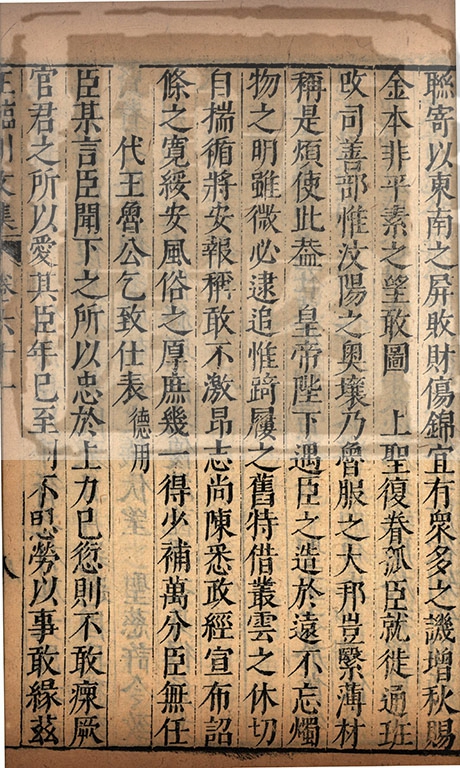 聯寄以東南之屏敗財傷錦宜有衆多之譏增秋賜
金本非平素之望敢圖　上聖復眷孤臣就徙通班
攺司善部惟汶陽之奥壤乃魯服之大邦豈緊薄材
稱是煩使此葢　皇帝陛下遇臣之造於遠不忘燭
物之明雖微必逮追惟踦屨之舊特借叢雲之休切
自揣循將安報稱敢不激昂志尚陳悉政經宣布詔
條之寛綏安風俗之厚庶幾一得少補萬分臣無任
代王魯公乞致仕表德用
臣某言臣聞下之所以忠於上力已愆則不敢瘝厥
官君之所以愛其臣年已至則不思勞以事敢緣茲
王臨川文集　卷六十一　八